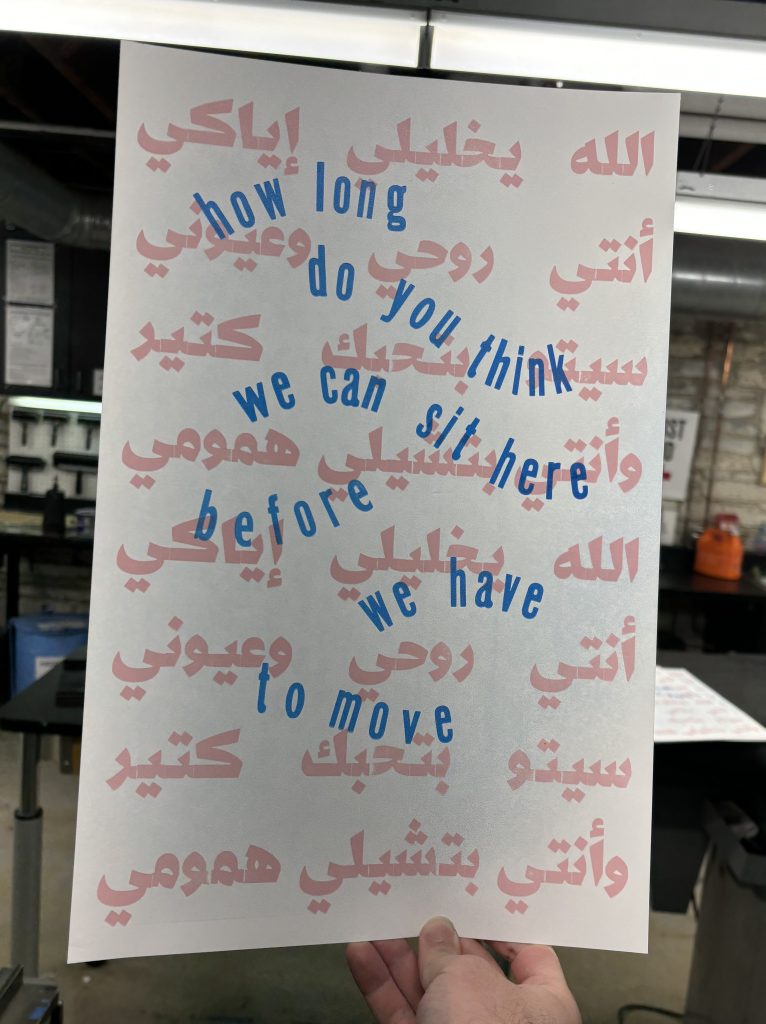 الله يخليلي إياكي
أنتي روحي وعيوني
سيتو بتحبك كتير
وأنتي بتشيلي همومي
الله يخليلي إياكي
أنتي روحي وعيوني
سيتو بتحبك كتير
وأنتي بتشيلي همومي
how long
do you think
we can sit here
before
we have
to move